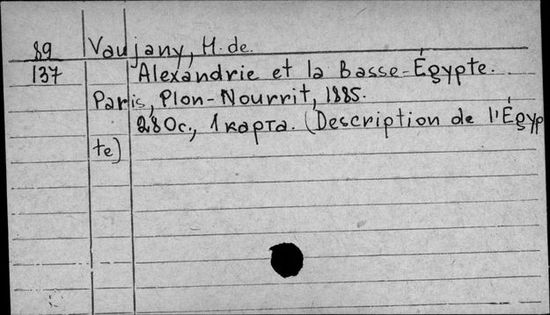 89 Vaujany, H. de.
137 Alexandrie et la Basse-Égypte.
Paris, Plon-Nourrit, 1885.
280с., 1 карта. (Description de l'Égyp
te)